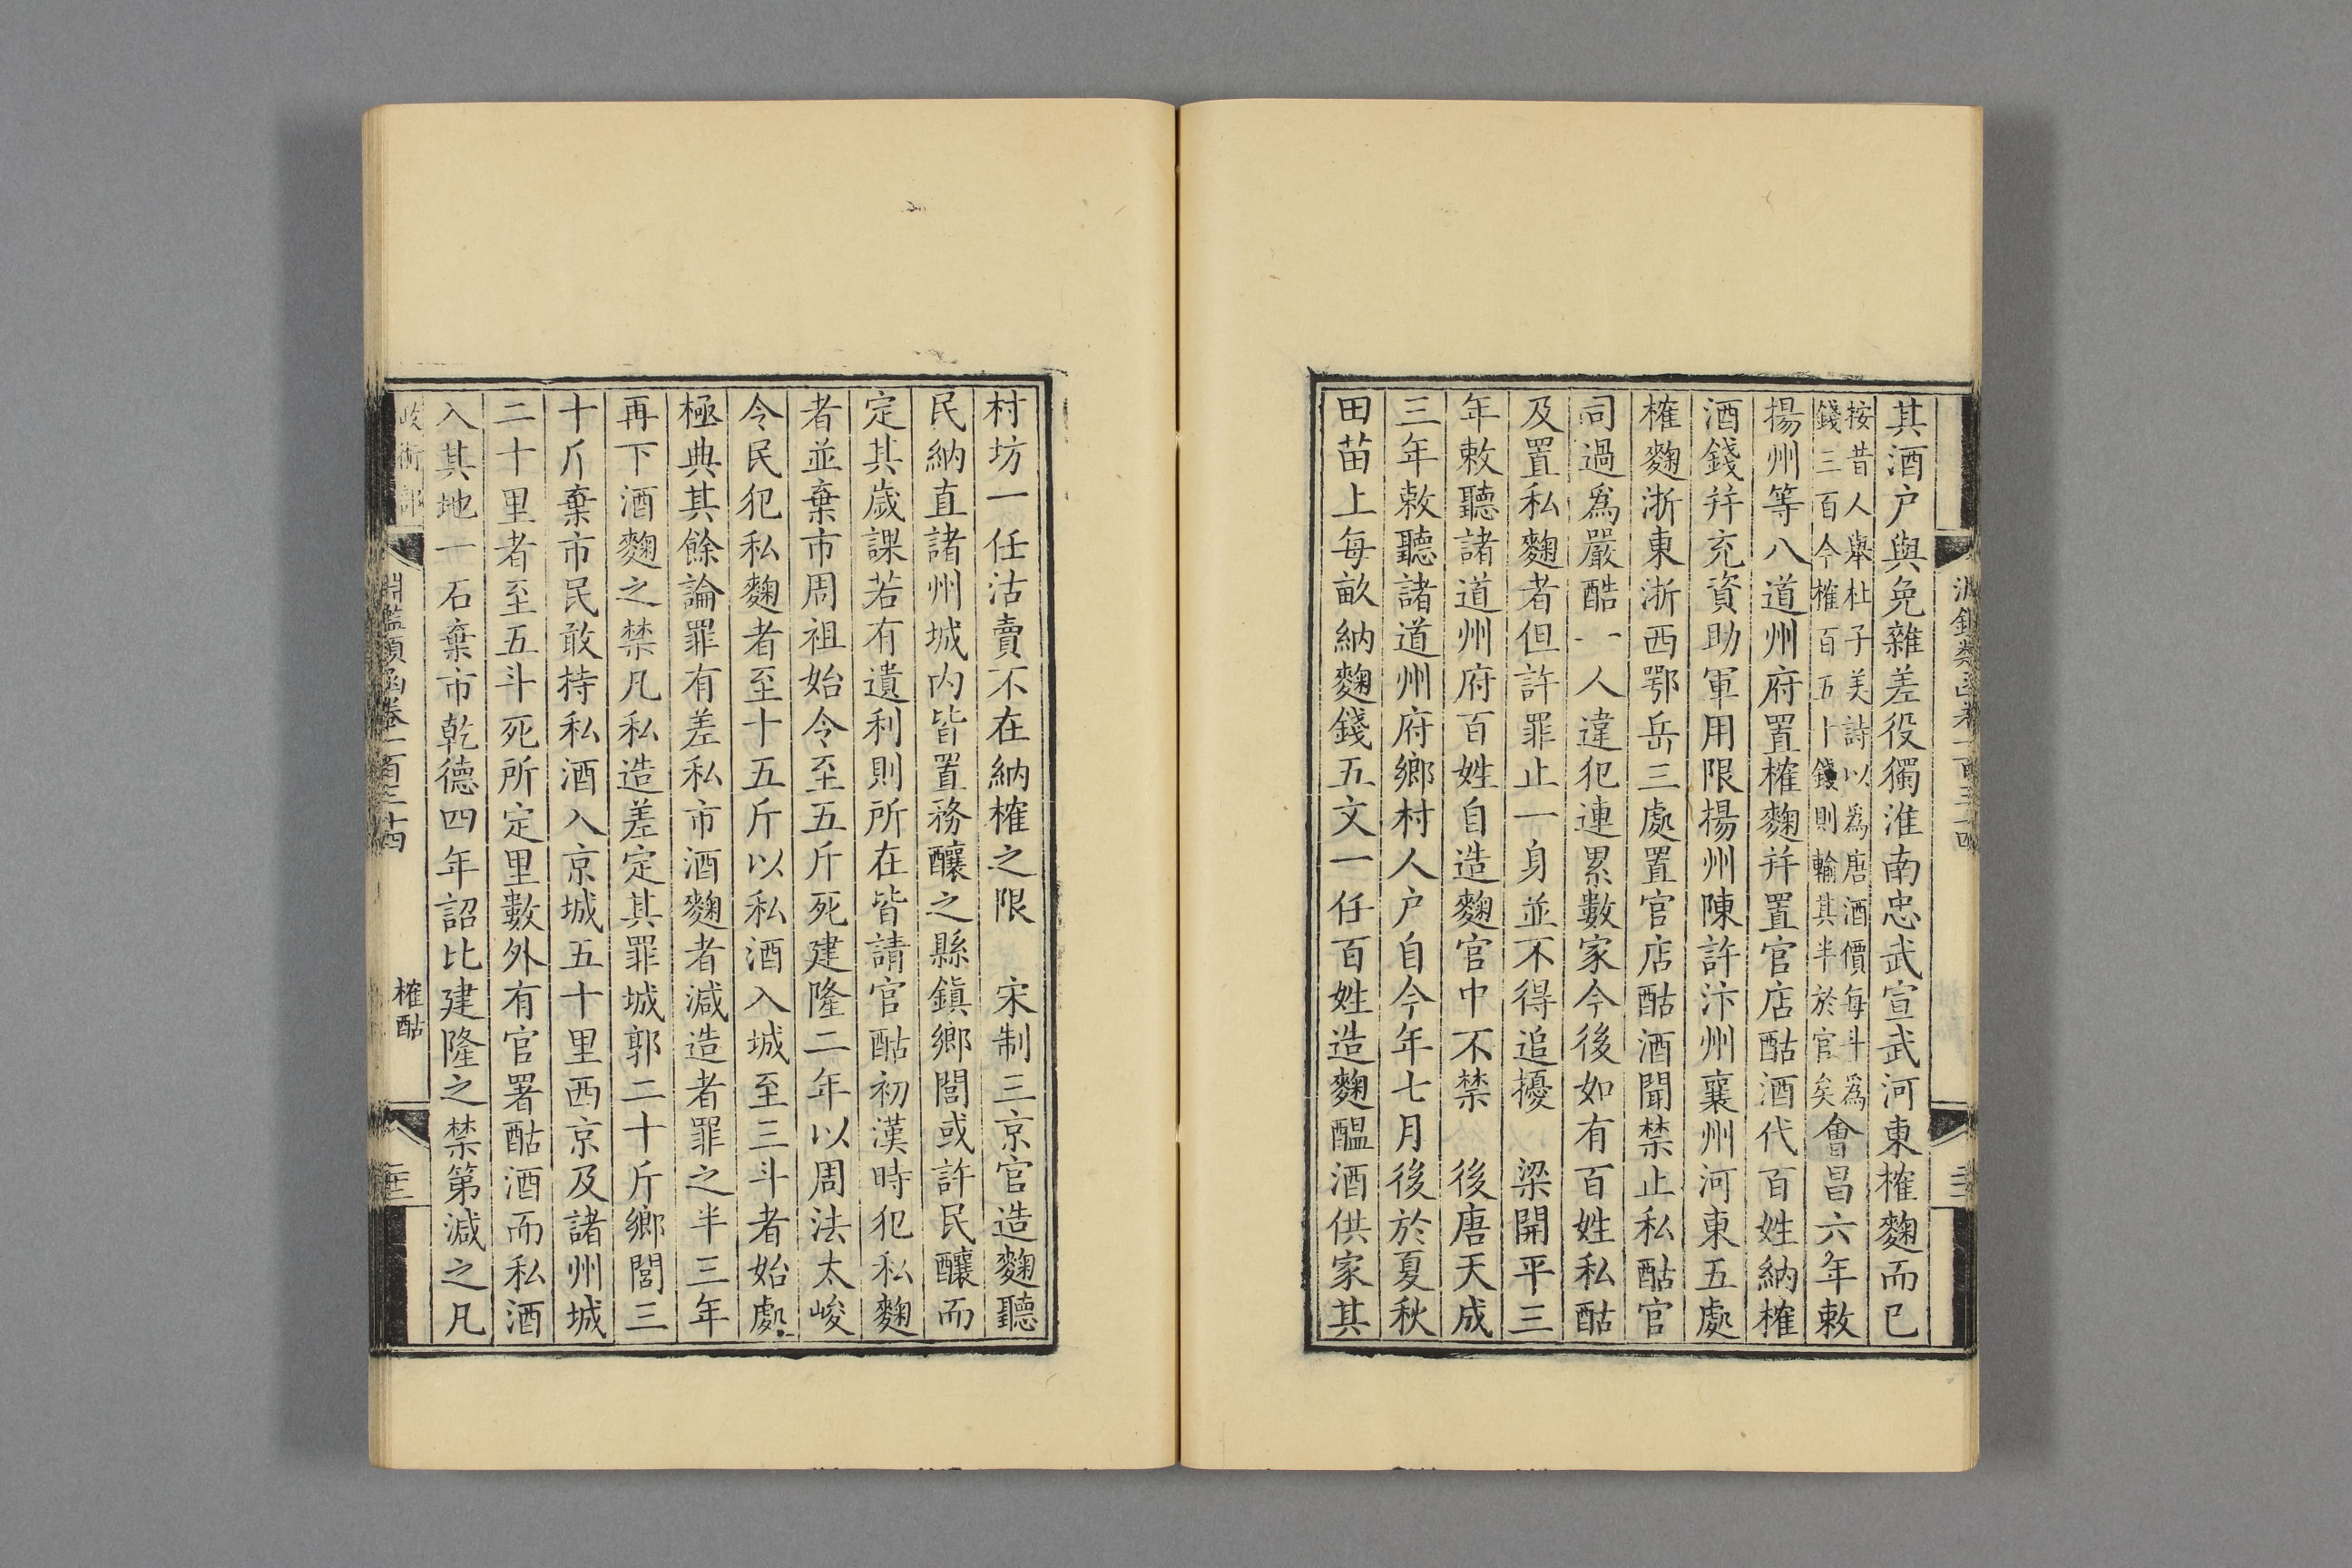 其酒户與免雜差役獨淮南忠武宣武河東榷麴而已
按昔人舉杜子美詩以爲唐酒價每斗爲
錢三百今榷百五十錢則輸其半於官矣
會昌六年敕
揚州等八道州府置榷麴并置官店酤酒代百姓納榷
酒錢并充資助軍用限揚州陳許汴州襄州河東五處
榷麴浙東浙西鄂岳三處置官店酤酒聞禁止私酤官
司過爲嚴酷一人違犯連累數家今後如有百姓私酤
及置私麴者但許罪止一身並不得追擾　梁開平三
年敕聽諸道州府百姓自造麴官中不禁　後唐天成
三年敕聽諸道州府鄉村人户自今年七月後於夏秋
田苗上每畝納麴錢五文一任百姓造麴醞酒供家其
村坊一任沽賣不在納榷之限　宋制三京官造麴聽
民納直諸州城内皆置務釀之縣鎮鄉閭或許民釀而
定其歲課若有遺利則所在皆請官酤初漢時犯私麴
者並棄市周祖始令至五斤死建隆二年以周法太峻
令民犯私麴者至十五斤以私酒入城至三斗者始處
極典其餘論罪有差私市酒麴者減造者罪之半三年
再下酒麴之禁凡私造差定其罪城郭二十斤鄉閭三
十斤棄市民敢持私酒入京城五十里西京及諸州城
二十里者至五斗死所定里數外有官署酤酒而私酒
入其地一石棄市乾德四年詔比建隆之禁第減之凡
淵鑑類函卷一百三十四
榷酤